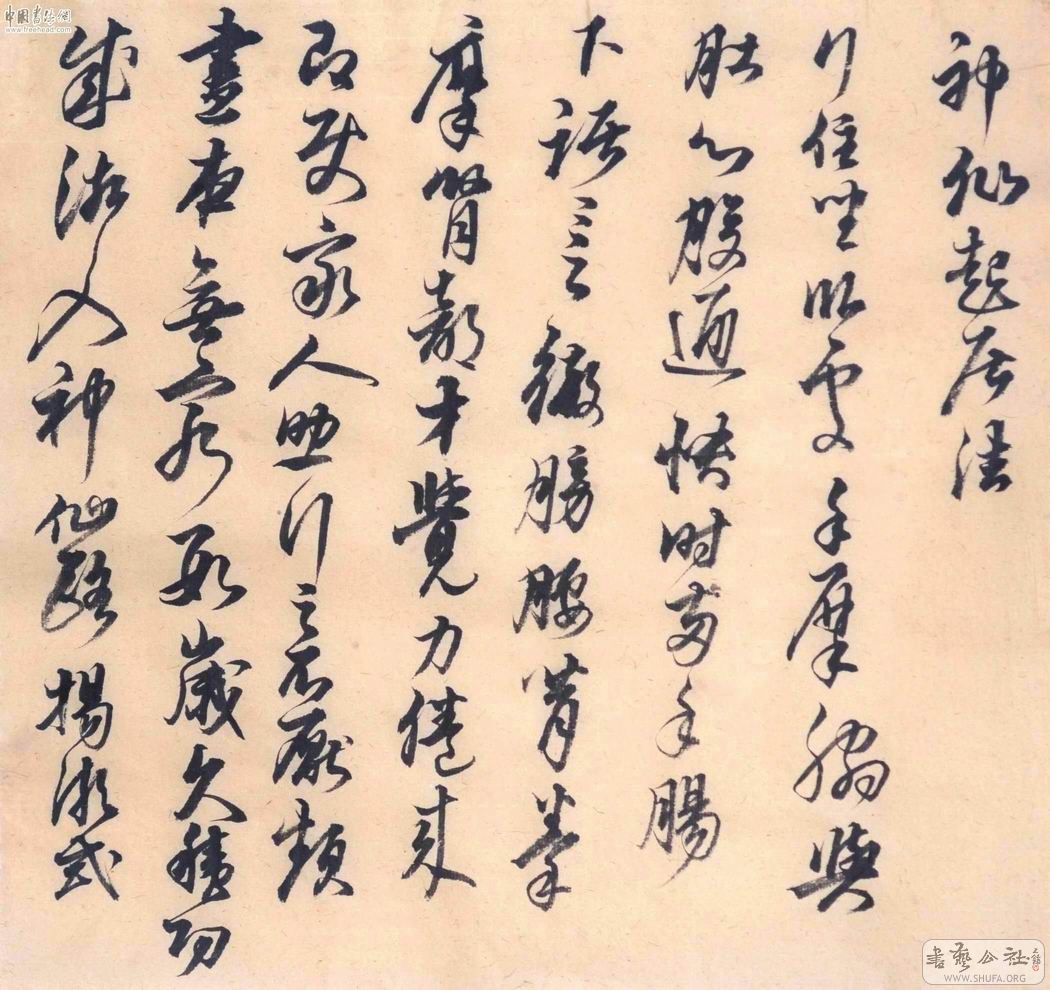 神仙起居法
行住坐臥處手摩脅與
肚心腹通快時兩手腸
下踞〻之徹膀腰背拳
摩腎部才覺力倦來
即使家人助行之不厭頻
晝夜無窮數歲久積功
成漸入神仙路 楊凝式
中国書法網
www.freehead.com
書藝公社
WWW.SHUFA.ORG